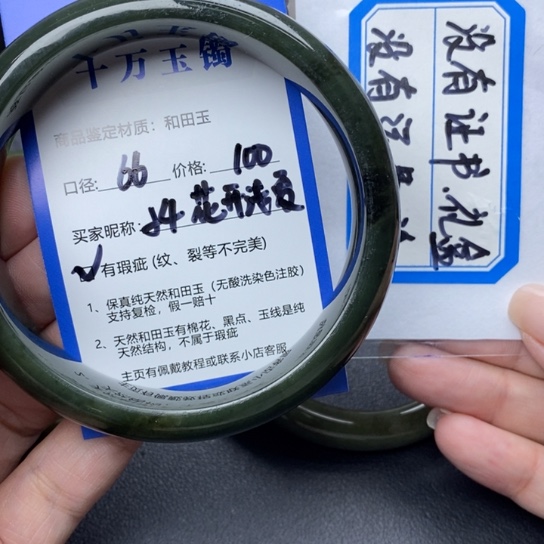 千万玉镯
商品鉴定材质：和田玉
口径: 66 价格: 100
买家昵称: 24 花开浅夏
有瑕疵 (纹、裂等不完美)
1、保真纯天然和田玉（无酸洗染色注胶）
支持复检，假一赔十
2、天然和田玉有棉花、黑点、玉线是纯
天然结构，不属于瑕疵
主页有佩戴教程或联系小店客服
没有证书.礼盒
没有